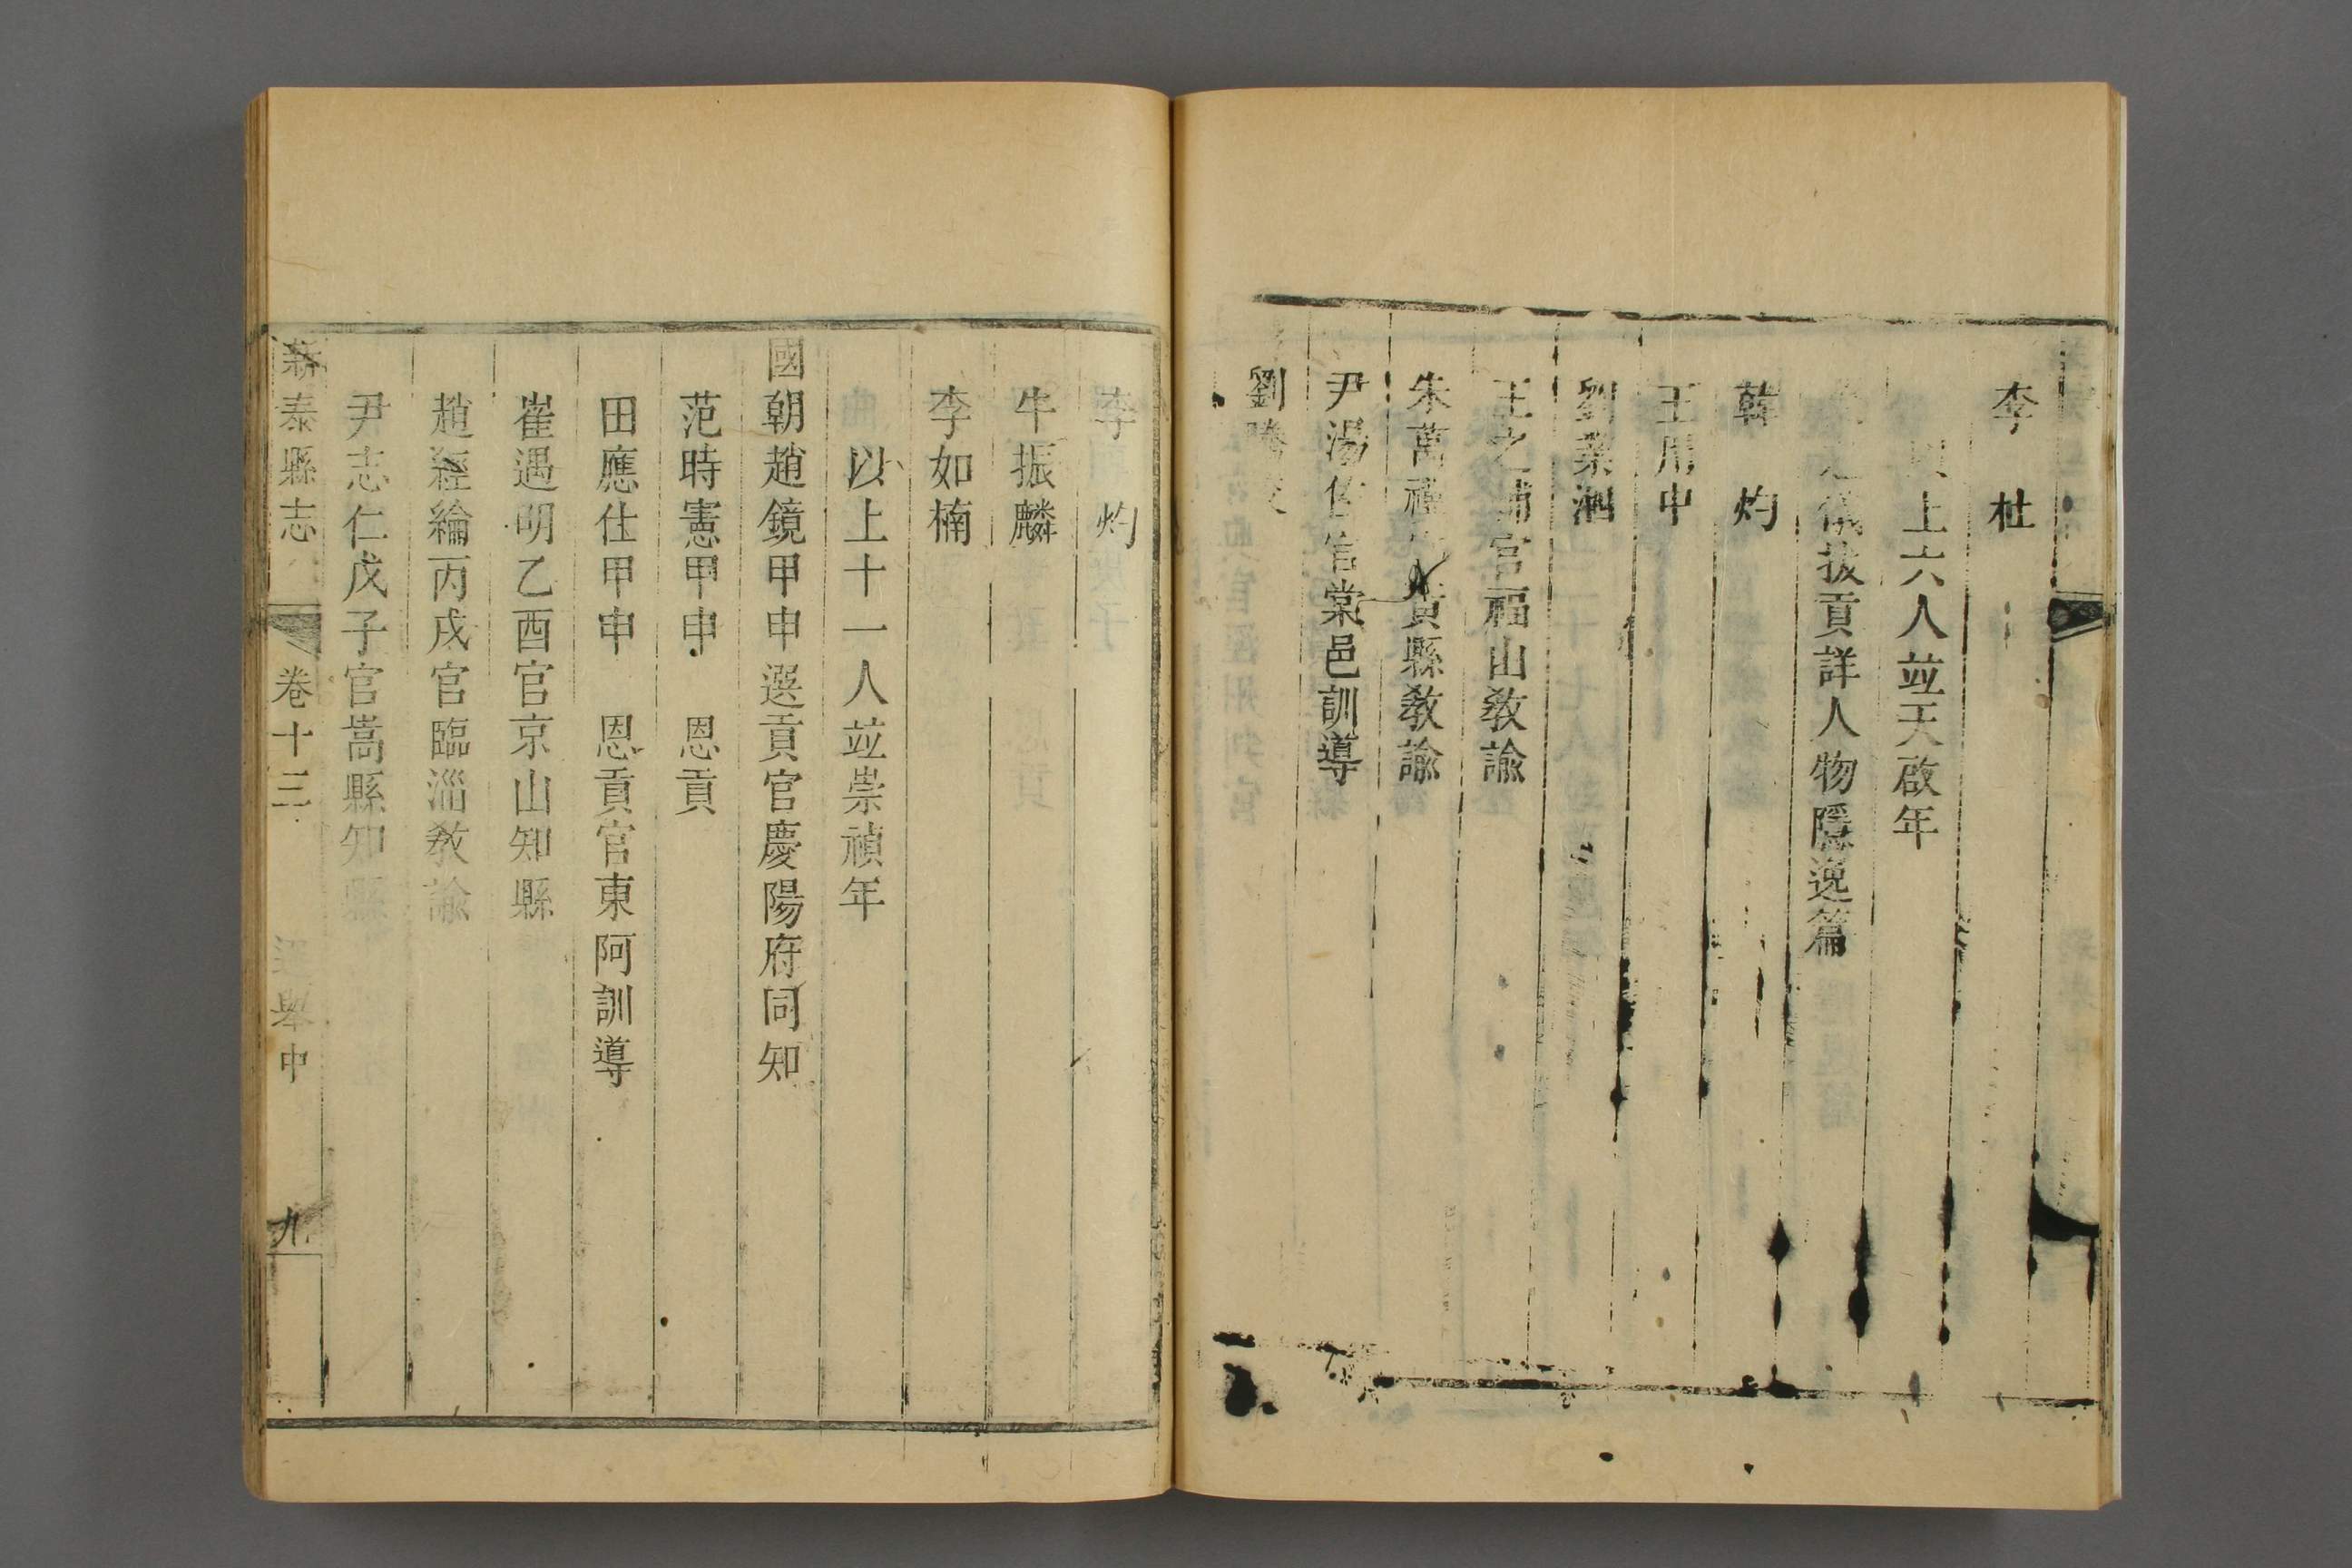 李杜
以上六人並天啟年
之儀拔貢詳人物隱逸篇
韓灼
王用中
劉業泗
王之輔官福山敎諭
朱萬 貢縣敎諭
尹湯 官棠邑訓導
劉
李灼
牛振麟
李如楠
以上十一人並崇禎年
國朝趙鏡甲申選貢官慶陽府同知
范時憲甲申恩貢
田應仕甲申恩貢官東阿訓導
崔遇明乙酉官京山知縣
趙經綸丙戌官臨淄敎諭
尹志仁戊子官嵩縣知縣
新泰縣志 卷十三 選舉中 九